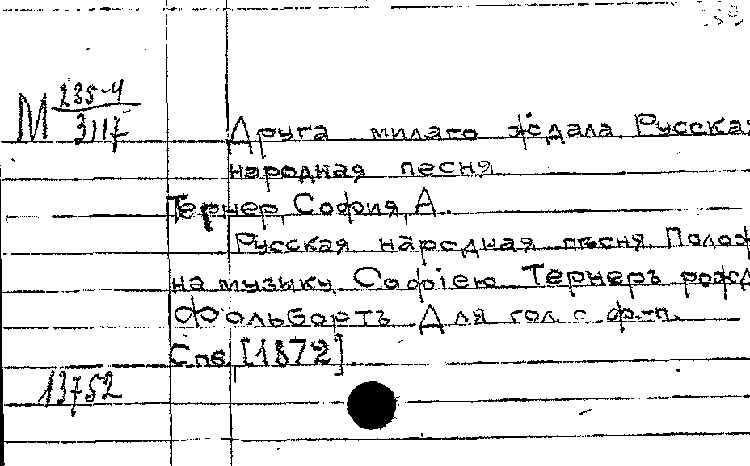 М 235-4
3117
Друга милаго ждала. Русская
народная песня
Тернер, София, А.
Русская народная пѣсня. Полож
на музыку Софiею Тернеръ рожд
Фольбортъ Для гол. с ф-п.
Спб [1872]
13752